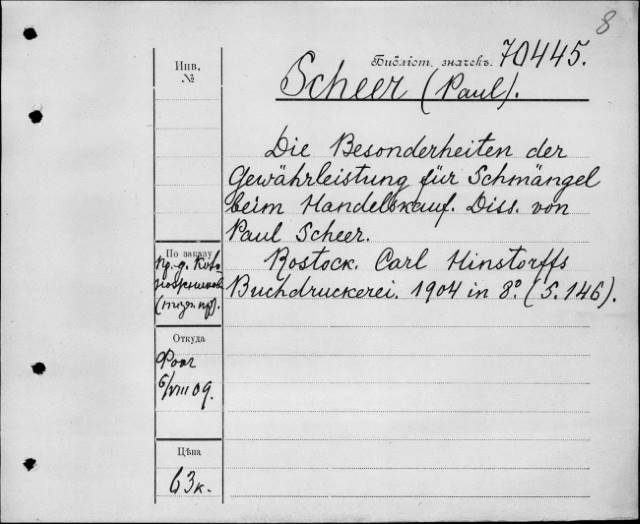 8
Инв.
№
Библіот. значекъ. 70445.
Scheer (Paul).
Die Besonderheiten der
Gewährleistung für Schmängel
beim Handelskauf. Diss. von
Paul Scheer.
Rostock. Carl Hinstorffs
Buchdruckerei. 1904 in 8° (S. 146).
По заказу
Пр.-д.
Откуда
Фоаг
6/VIII 09.
Цѣна
63 к.